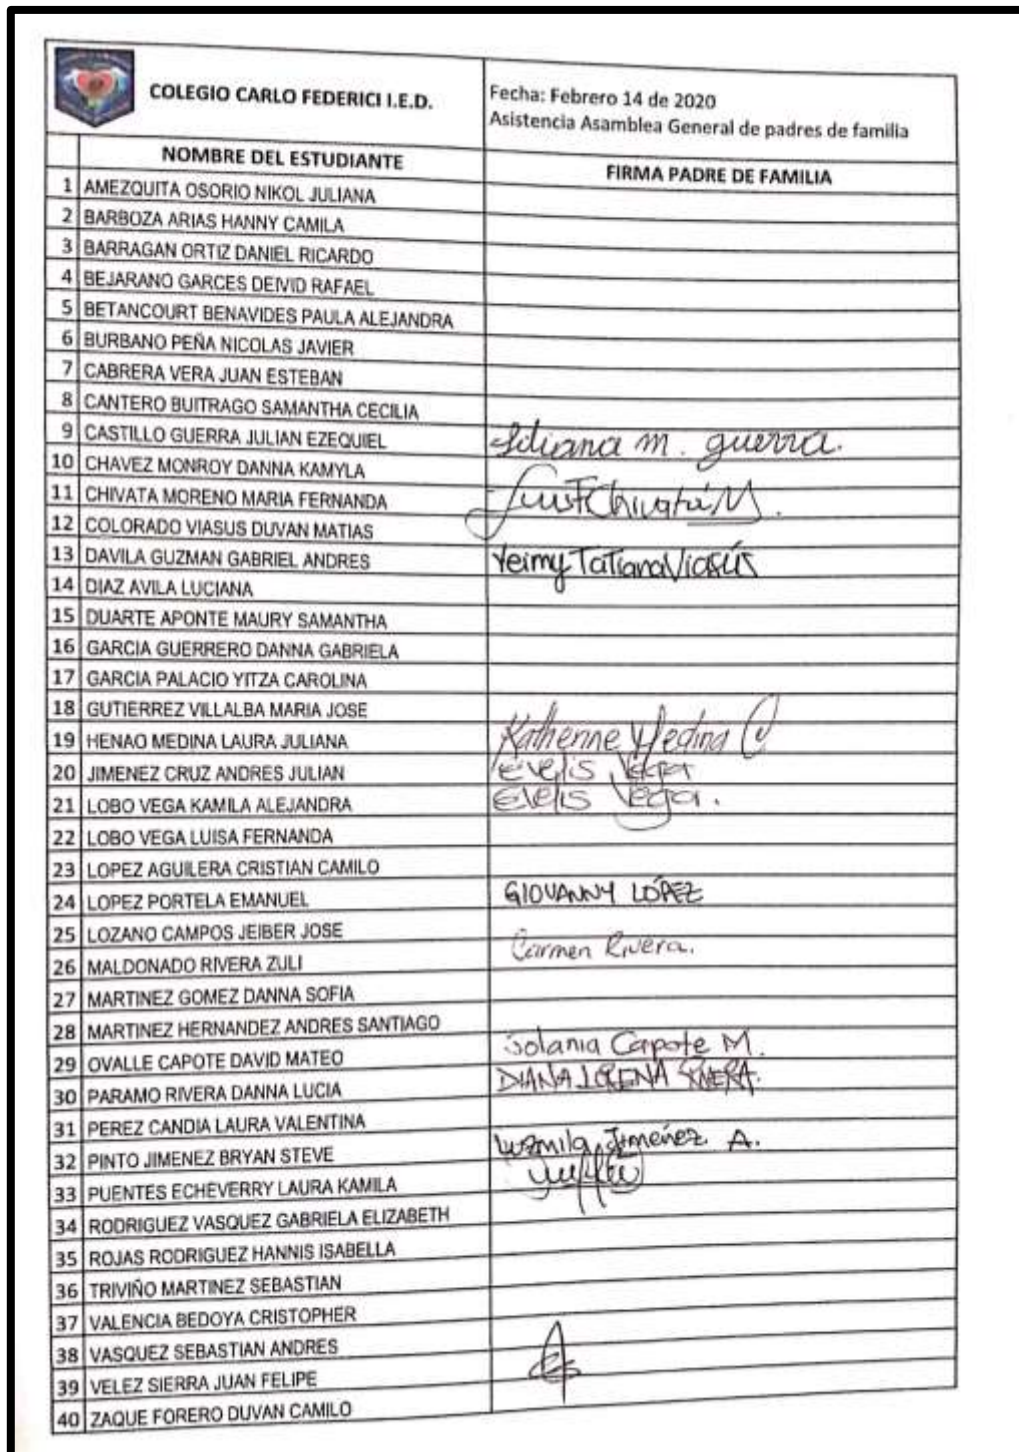 COLEGIO CARLO FEDERICI I.E.D.
Fecha: Febrero 14 de 2020
Asistencia Asamblea General de padres de familia
NOMBRE DEL ESTUDIANTE FIRMA PADRE DE FAMILIA
1 AMEZQUITA OSORIO NIKOL JULIANA
2 BARBOZA ARIAS HANNY CAMILA
3 BARRAGAN ORTIZ DANIEL RICARDO
4 BEJARANO GARCES DEIVID RAFAEL
5 BETANCOURT BENAVIDES PAULA ALEJANDRA
6 BURBANO PEÑA NICOLAS JAVIER
7 CABRERA VERA JUAN ESTEBAN
8 CANTERO BUITRAGO SAMANTHA CECILIA
9 CASTILLO GUERRA JULIAN EZEQUIEL m. guerra.
10 CHAVEZ MONROY DANNA KAMYLA
11 CHIVATA MORENO MARIA FERNANDA
12 COLORADO VIASUS DUVAN MATIAS
13 DAVILA GUZMAN GABRIEL ANDRES Yeimy Tatiana Viasús
14 DIAZ AVILA LUCIANA
15 DUARTE APONTE MAURY SAMANTHA
16 GARCIA GUERRERO DANNA GABRIELA
17 GARCIA PALACIO YITZA CAROLINA
18 GUTIERREZ VILLALBA MARIA JOSE
19 HENAO MEDINA LAURA JULIANA Katherine Medina C
20 JIMENEZ CRUZ ANDRES JULIAN Evelis Vega
21 LOBO VEGA KAMILA ALEJANDRA Evelis Vega.
22 LOBO VEGA LUISA FERNANDA
23 LOPEZ AGUILERA CRISTIAN CAMILO
24 LOPEZ PORTELA EMANUEL GIOVANNY LÓPEZ
25 LOZANO CAMPOS JEIBER JOSE
26 MALDONADO RIVERA ZULI Carmen Rivera.
27 MARTINEZ GOMEZ DANNA SOFIA
28 MARTINEZ HERNANDEZ ANDRES SANTIAGO
29 OVALLE CAPOTE DAVID MATEO Solania Capote M.
30 PARAMO RIVERA DANNA LUCIA DIANA LORENA RIVERA.
31 PEREZ CANDIA LAURA VALENTINA
32 PINTO JIMENEZ BRYAN STEVE Luzmila Jimenez A.
33 PUENTES ECHEVERRY LAURA KAMILA
34 RODRIGUEZ VASQUEZ GABRIELA ELIZABETH
35 ROJAS RODRIGUEZ HANNIS ISABELLA
36 TRIVIÑO MARTINEZ SEBASTIAN
37 VALENCIA BEDOYA CRISTOPHER
38 VASQUEZ SEBASTIAN ANDRES
39 VELEZ SIERRA JUAN FELIPE
40 ZAQUE FORERO DUVAN CAMILO